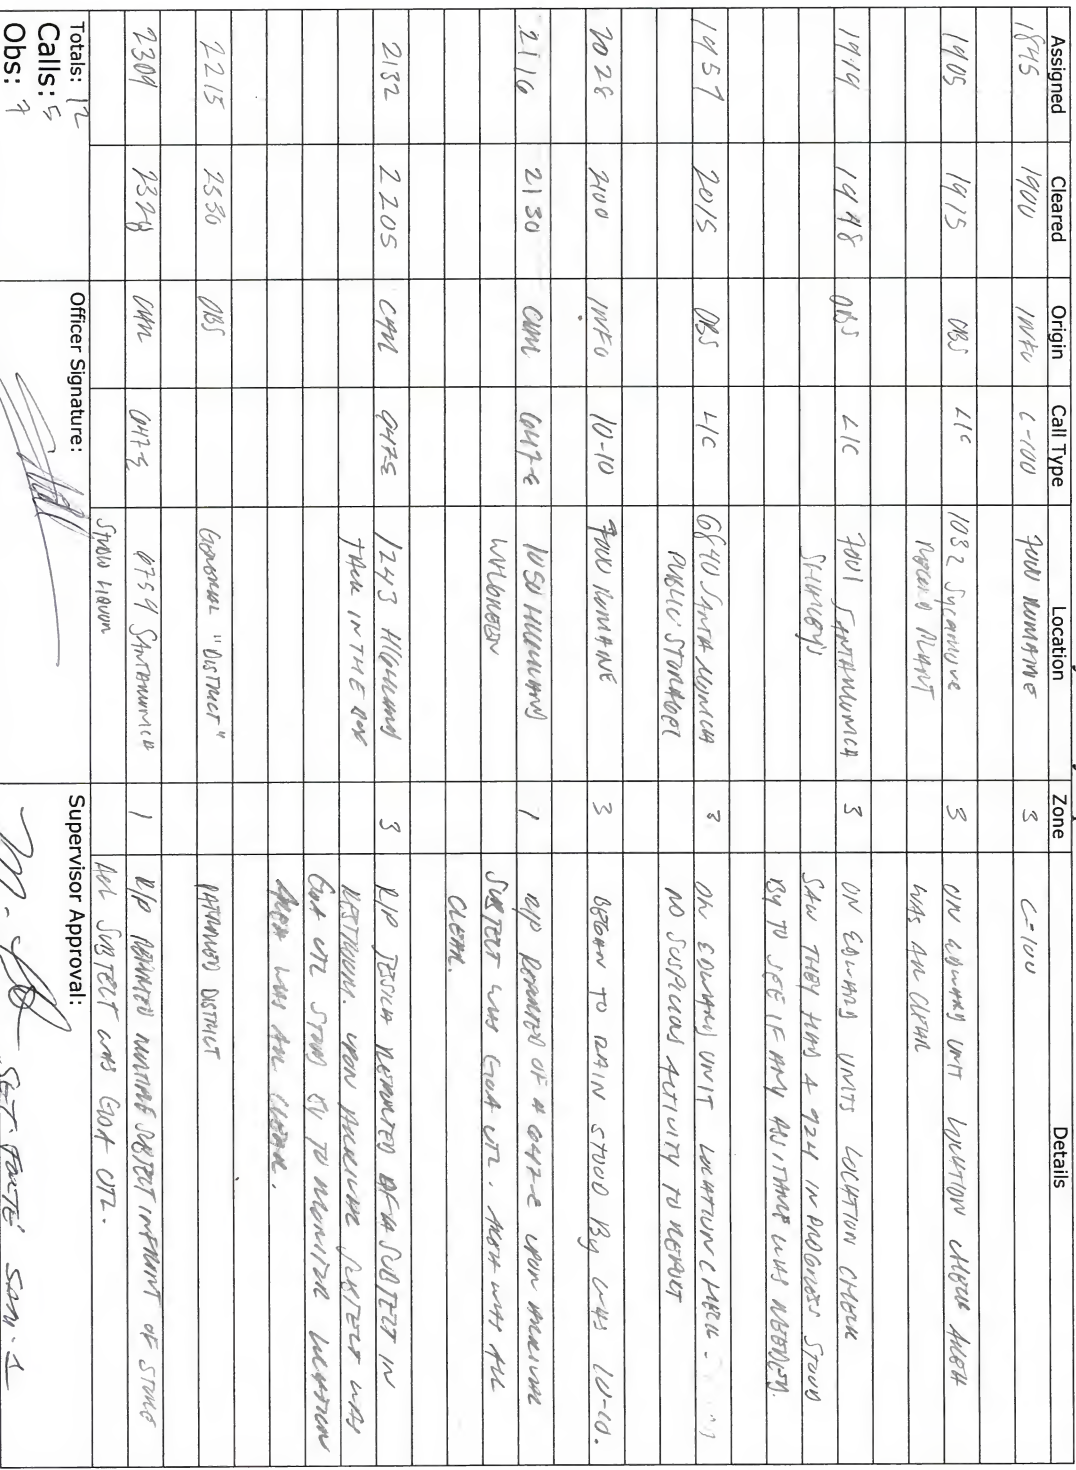 Assigned Cleared Origin Call Type Location Zone Details
1845 1900 INFO C-100 7000 ROMAINE 3 C-100
1905 1915 OBS L/C 1032 Sycamore 3 ON EDWARD UNIT LOCATION CHECK AREA
RECORD PLANT WAS ALL CLEAR
1919 1948 OBS L/C 7001 SANTA MONICA 3 ON EDWARD UNITS LOCATION CHECK
SHAKEY'S SAW THEY HAD A 924 IN PROGRESS STOOD
BY TO SEE IF ANY ASSITANCE WAS NEEDED.
1957 2015 OBS L/C 6840 SANTA MONICA 3 ON EDWARD UNIT LOCATION CHECK -
PUBLIC STORAGE NO SUSPICIOUS ACTIVITY TO REPORT
2028 2100 INFO 10-10 7000 ROMAINE 3 BEGAN TO RAIN STOOD BY WAS 10-10.
2116 2130 CAM 647-E 1050 HIGHLAND 1 R/P REPORTED OF A 647-E UPON ARRIVAL
SUBJECT WAS GOA UTL. AREA WAS ALL
CLEAR.
2132 2205 CAM 647-E 1243 HIGHLAND 3 R/P JESSICA REPORTED OF A SUBJECT IN
TRUCK IN THE RESTROOM. UPON ARRIVAL SUBJECT WAS
GOA UTL STOOD BY TO MONITOR LOCATION
AREA WAS ALL CLEAR.
2215 2530 OBS GENERAL "DISTRICT" PATROLLED DISTRICT
2309 2328 CAM 647-E 6759 SANTA MONICA 1 R/P REPORTED MULTIPLE SUBJECT INFRONT OF STORE
LIQUOR ALL SUBJECT WAS GOA UTL.
Totals: 12
Calls: 5
Obs: 7
Officer Signature:
Supervisor Approval:
SGT. SAM-1